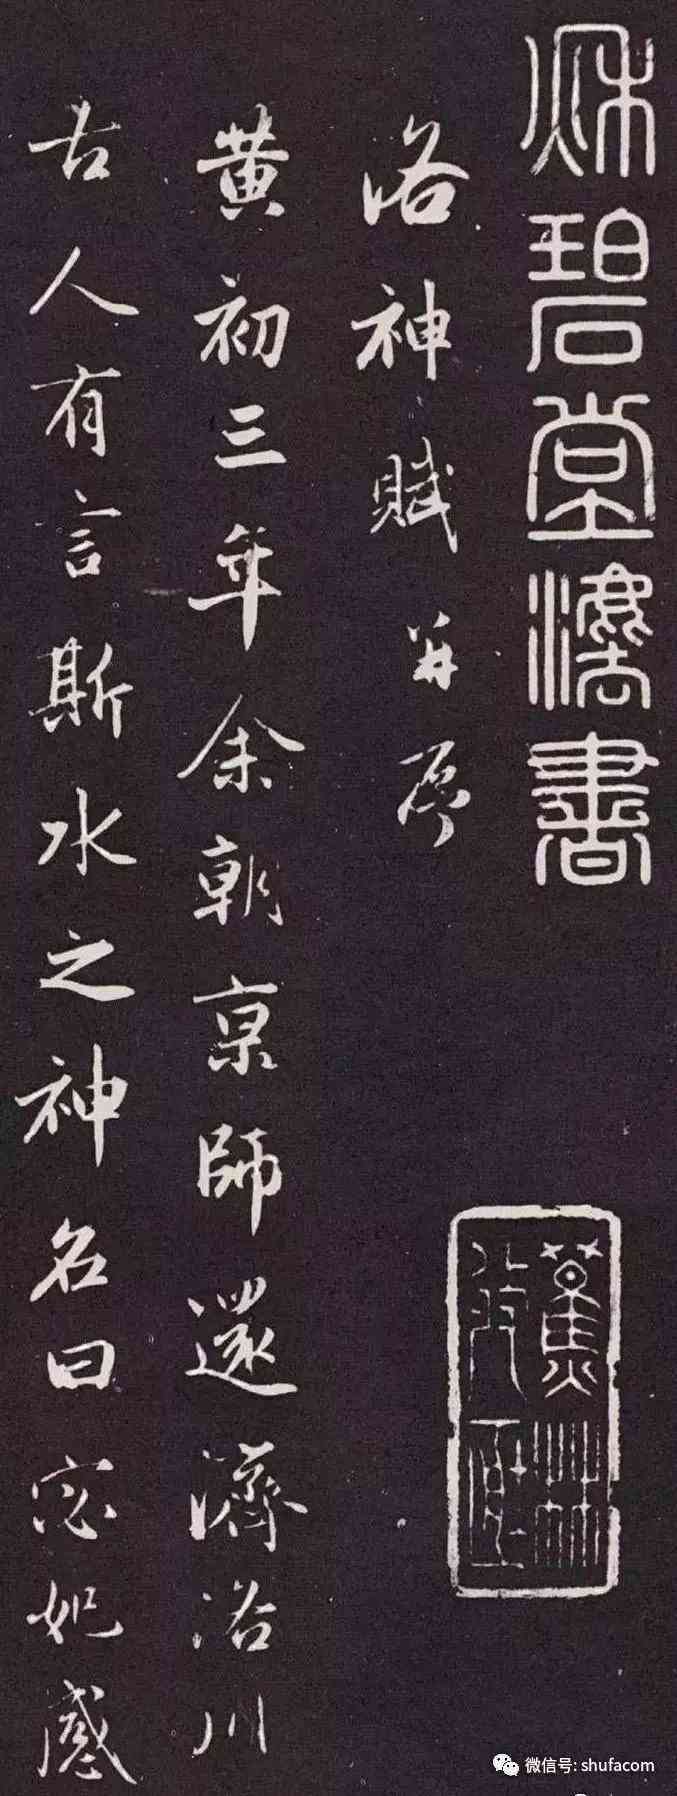 秌碧堂灋書
洛神賦并序
黄初三年余朝京師還濟洛川
古人有言斯水之神名曰宓妃感
蕉林
微信号: shufacom